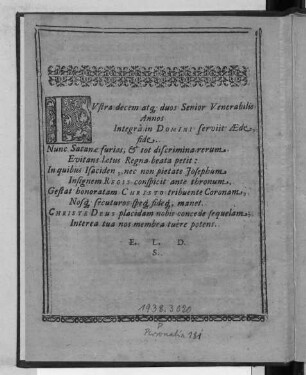 LVstra decem atq; duos Senior Venerabilis
Annos
Integrâ in DOMINI serviit Æde,
fide.
Nunc Satanæ furias, & tot discrimina rerum
Evitans letus Regna beata petit:
In quibus Isaciden, nec non pietate Josephum
Insignem REGIS conspicit ante thronum.
Gestat honoratam CHRISTO tribuente Coronam,
Nosq; secuturos speq; fideq; manet.
CHRISTE DEUS placidam nobis concede sequelam;
Interea tua nos membra tuêre potens.
E. L. D.
S.
1938.3030
P
Personalia